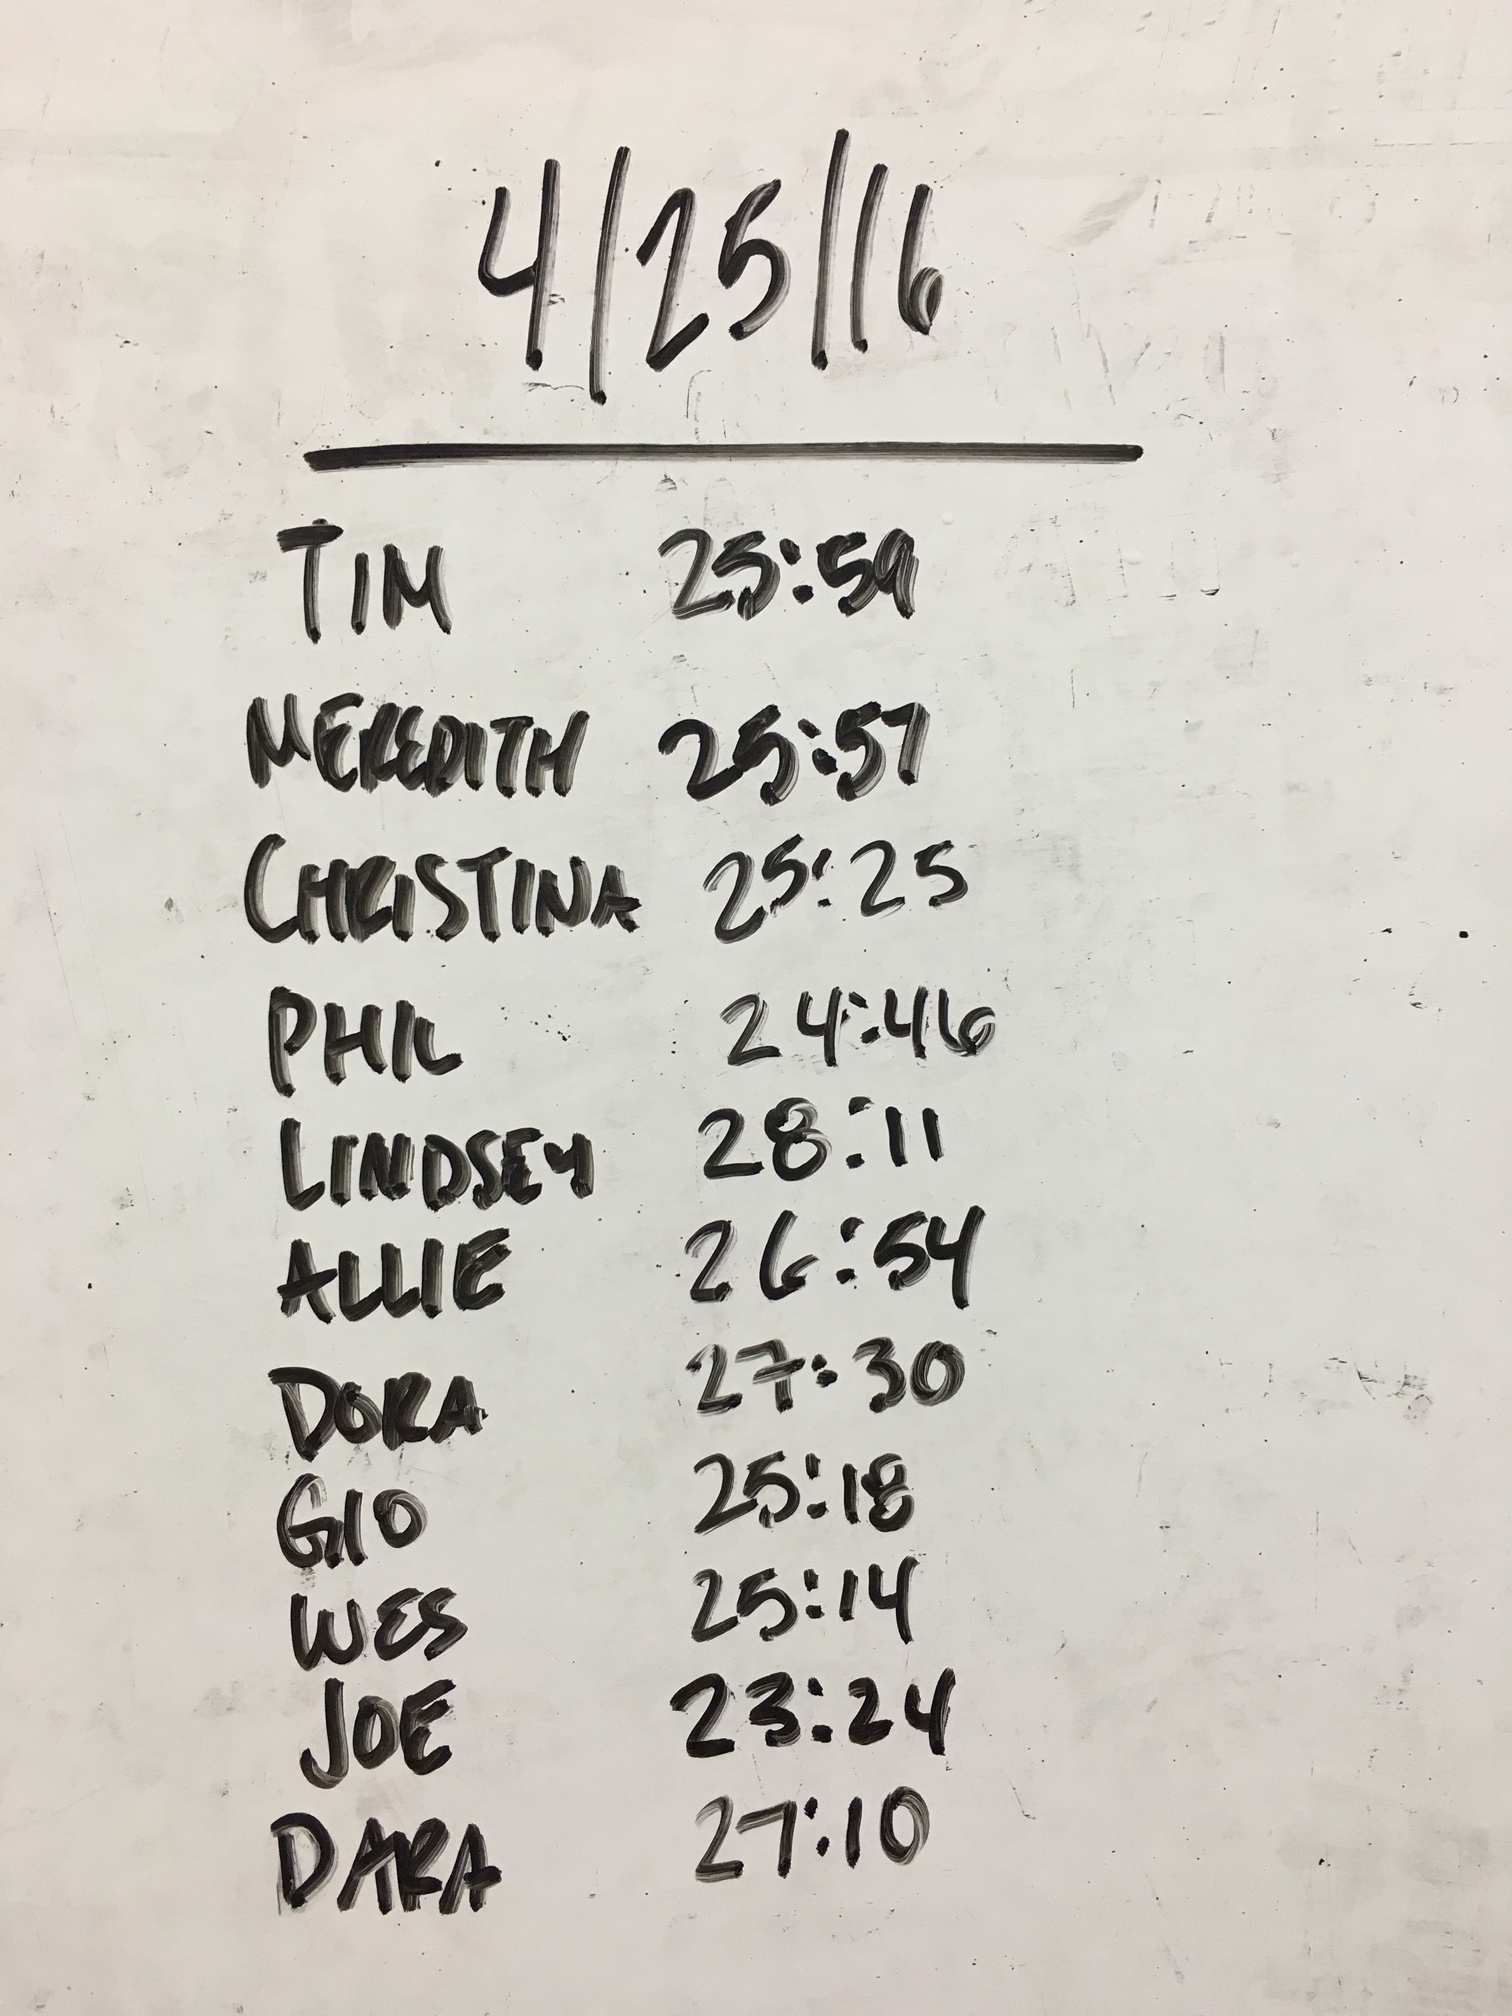 4/25/16
TIM 25:59
MEREDITH 25:57
CHRISTINA 25:25
PHIL 24:46
LINDSEY 28:11
ALLIE 26:54
DORA 27:30
GIO 25:18
WES 25:14
JOE 23:24
DARA 27:10